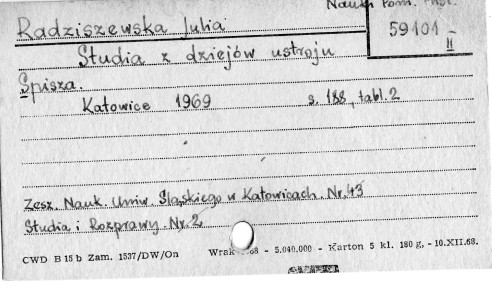 Nauk. Pom. Hist.
Radziszewska Julia
59101
II
Studia z dziejów ustroju
Spisza.
Katowice 1969 s. 188, tabl. 2
Zesz. Nauk. Uniw. Śląskiego w Katowicach. Nr. 43
Studia i Rozprawy. Nr. 2
CWD B 15 b Zam. 1537/DW/On Wrak - 5.040.000 - Karton 5 kl. 180 g, - 10.XII.68.